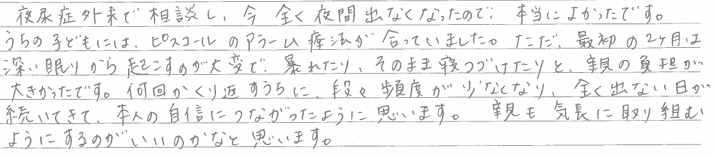 夜尿症外来で相談し、今全く夜間出なくなったので、本当によかったです。
うちの子どもには、ピスコールのアラーム療法が合っていました。ただ、最初の2ヶ月は
深い眠りから起こすのが大変で、暴れたり、そのまま寝つづけたりと、親の負担が
大きかったです。何回かくり返すうちに、段々頻度が少なくなり、全く出ない日が
続いてきて、本人の自信につながったように思います。親も気長に取り組む
ようにするのがいいのかなと思います。